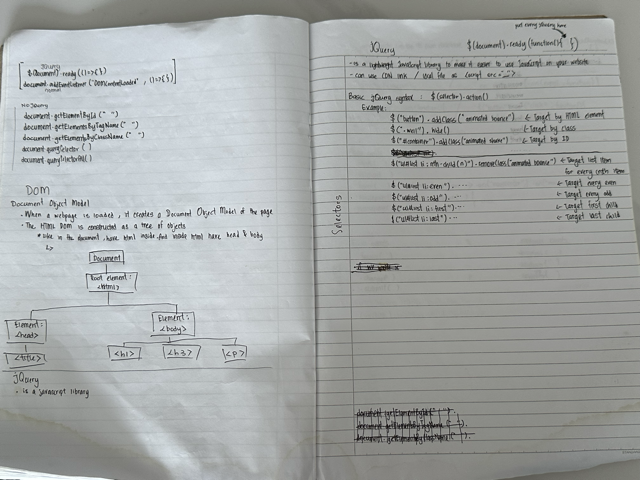 JQuery
$(Document).ready(()=>{})
document.addEventListener("DOMContentLoaded", ()=>{})
normal
No JQuery
document.getElementById(" ")
document.getElementsByTagName(" ")
document.getElementsByClassName(" ")
document.querySelector( )
document.querySelectorAll( )
DOM
Document Object Model
- When a webpage is loaded, it creates a Document Object Model of the page
- The HTML DOM is constructed as a tree of objects
* like in the document, have html inside, and inside html have head & body
Document
Root element:
<html>
Element:
<head>
Element:
<body>
<title>
<h1>
<h3>
<p>
jQuery
- is a javascript library
put every thing here
JQuery
$(document).ready(function(){ })
- is a lightweight JavaScript library to make it easier to use JavaScript on your website
- can use CDN link / local file as <script src="...">
Basic jQuery syntax: $(selector).action()
Example:
$("button").addClass("animated bounce") ← Target by HTML element
$(".well").hide() ← Target by class
$("#container").addClass("animated shake") ← Target by ID
← Target list item
for every nth item
$("ul#list li:even")... ← Target every even
$("ul#list li:odd")... ← Target every odd
$("ul#list li:first")... ← Target first child
$("ul#list li:last")... ← Target last child
Selectors
document.getElementById(" ")
document.getElementsByTagName(" ");
document.getElementsByClassName(" ");